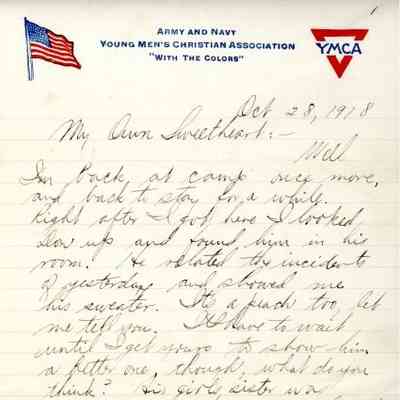 1
ARMY AND NAVY
YOUNG MEN'S CHRISTIAN ASSOCIATION
"WITH THE COLORS"
YMCA
Oct 28, 1918
My Own Sweetheart:-
Well
I'm back at camp once more,
and back to stay for a while.
Right after I got here I looked
Dow up and found him in his
room. He related the incidents
of yesterday and showed me
his sweater. It's a peach too, let
me tell you. I'll have to wait
until I get yours to show him
a better one, though, what do you
think? His girl's sister was